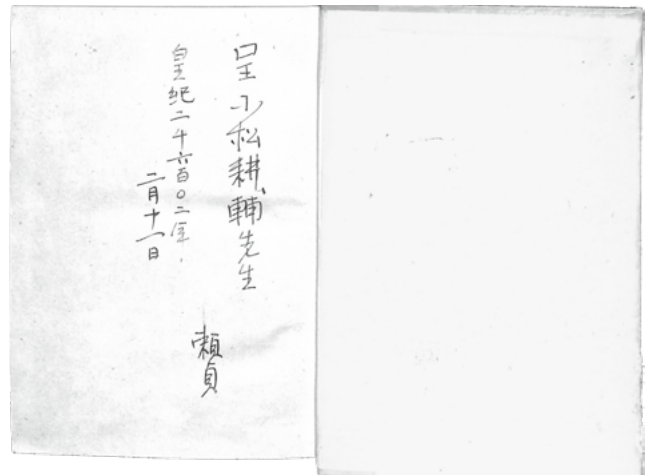 呈小松耕輔先生
皇紀二千六百〇二年、
二月十一日
頼貞